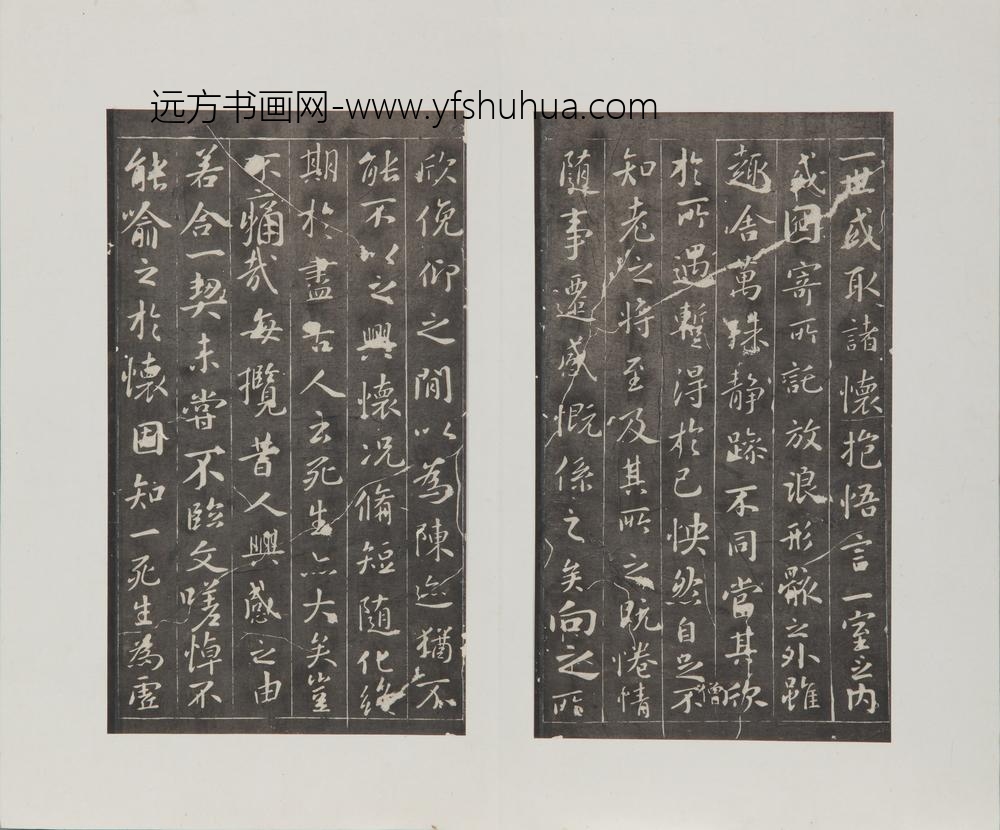 远方书画网-www.yfshuhua.com
一世或取諸懷抱悟言一室之內
或因寄所託放浪形骸之外雖
趣舍萬殊靜躁不同當其欣
於所遇暫得於己怏然自足不
僧
知老之將至及其所之既惓情
隨事遷感慨係之矣向之所
欣俛仰之間以為陳迹猶不
能不以之興懷況脩短隨化終
期於盡古人云死生亦大矣豈
不痛哉每攬昔人興感之由
若合一契未嘗不臨文嗟悼不
能喻之於懷固知一死生為虛